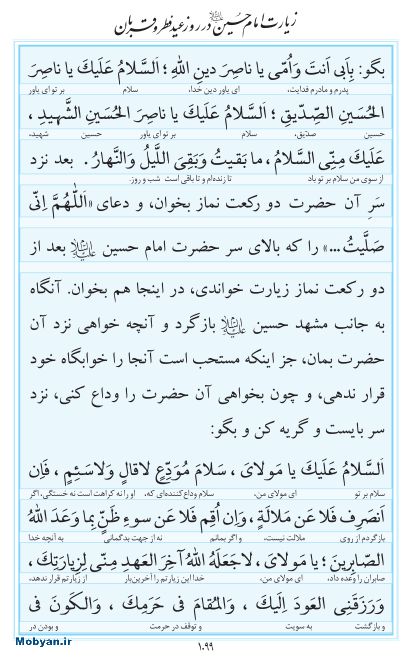 زیارت امام حسین علیه‌السلام در روز عید فطر و قربان
بگو: بِاَبی اَنتَ وَاُمّی یا ناصِرَ دینِ اللّهِ ؛ اَلسَّلامُ عَلَیكَ یا ناصِرَ
پدرم و مادرم فدایت، ای یاور دین خدا، سلام بر تو ای یاور
الحُسَینِ الصِّدّیقِ ؛ اَلسَّلامُ عَلَیكَ یا ناصِرَ الحُسَینِ الشَّهیدِ ،
حسین صدّیق، سلام بر تو ای یاور حسین شهید،
عَلَیكَ مِنِّی السَّلامُ ، ما بَقیتُ وَبَقِیَ اللَّیلُ وَالنَّهارُ . بعد نزد
از سوی من سلام بر تو باد تا زنده‌ام و تا باقی است شب و روز.
سَرِ آن حضرت دو ركعت نماز بخوان، و دعای «اَللّهُمَّ اِنّی
صَلَّیتُ ...» را كه بالای سر حضرت امام حسین علیه‌السلام بعد از
دو ركعت نماز زیارت خواندی، در اینجا هم بخوان. آنگاه
به جانب مشهد حسین علیه‌السلام بازگرد و آنچه خواهی نزد آن
حضرت بمان، جز اینكه مستحب است آنجا را خوابگاه خود
قرار ندهی، و چون بخواهی آن حضرت را وداع كنی، نزد
سر بایست و گریه كن و بگو:
اَلسَّلامُ عَلَیكَ یا مَولایَ ، سَلامَ مُوَدِّعٍ لاقالٍ وَلاسَئِمٍ ، فَاِن
سلام بر تو ای مولای من، سلام وداع كننده‌ای كه، او را نه كراهت است نه خستگی، اگر
اَنصَرِف فَلا عَن مَلالَةٍ ، وَاِن اُقِم فَلا عَن سوءِ ظَنٍّ بِما وَعَدَ اللّهُ
بازگردم از روی ملالت نیست، و اگر بمانم نه از جهت بدگمانی به آنچه خدا
الصّابِرینَ ؛ یا مَولایَ ، لاجَعَلَهُ اللّهُ آخِرَ العَهدِ مِنّی لِزِیارَتِكَ ،
صابران را وعده داد، ای مولای من، خدا این زیارتم را آخرین‌بار از زیارتم قرار ندهد،
وَرَزَقَنِی العَودَ اِلَیكَ ، وَالمُقامَ فی حَرَمِكَ ، وَالكَونَ فی
و بازگشت به سویت و توقف در حرمت و بودن در
١٠٩٩
Mobyan.ir